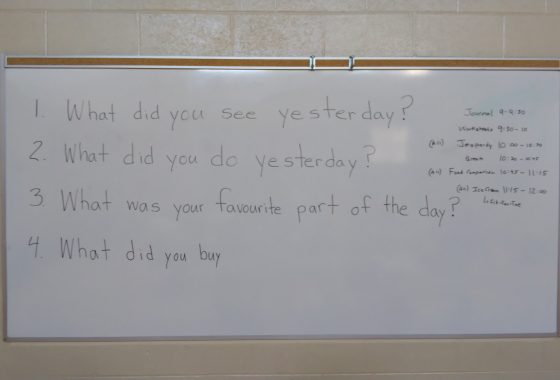 1. What did you see yesterday?
2. What did you do yesterday?
3 What was your favourite part of the day?
4. What did you buy
Journal 9-9:30
Worksheets 9:30-10
Jeopardy 10:00-10:30
Break 10:30-10:45
Food Comparison 10:45-11:15
Ice Cream 11:15-12:00